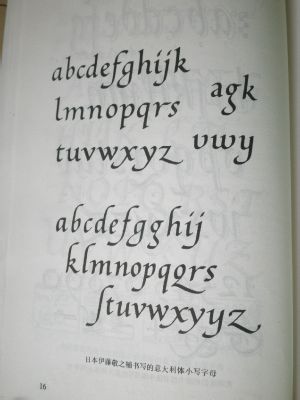 abcdefghijk
agk
lmnopqrs
vwy
tuvwxyz
abcdefgghij
klmnopqqrs
stuvwxyyz
日本伊藤敬之楠书写的意大利体小写字母
16